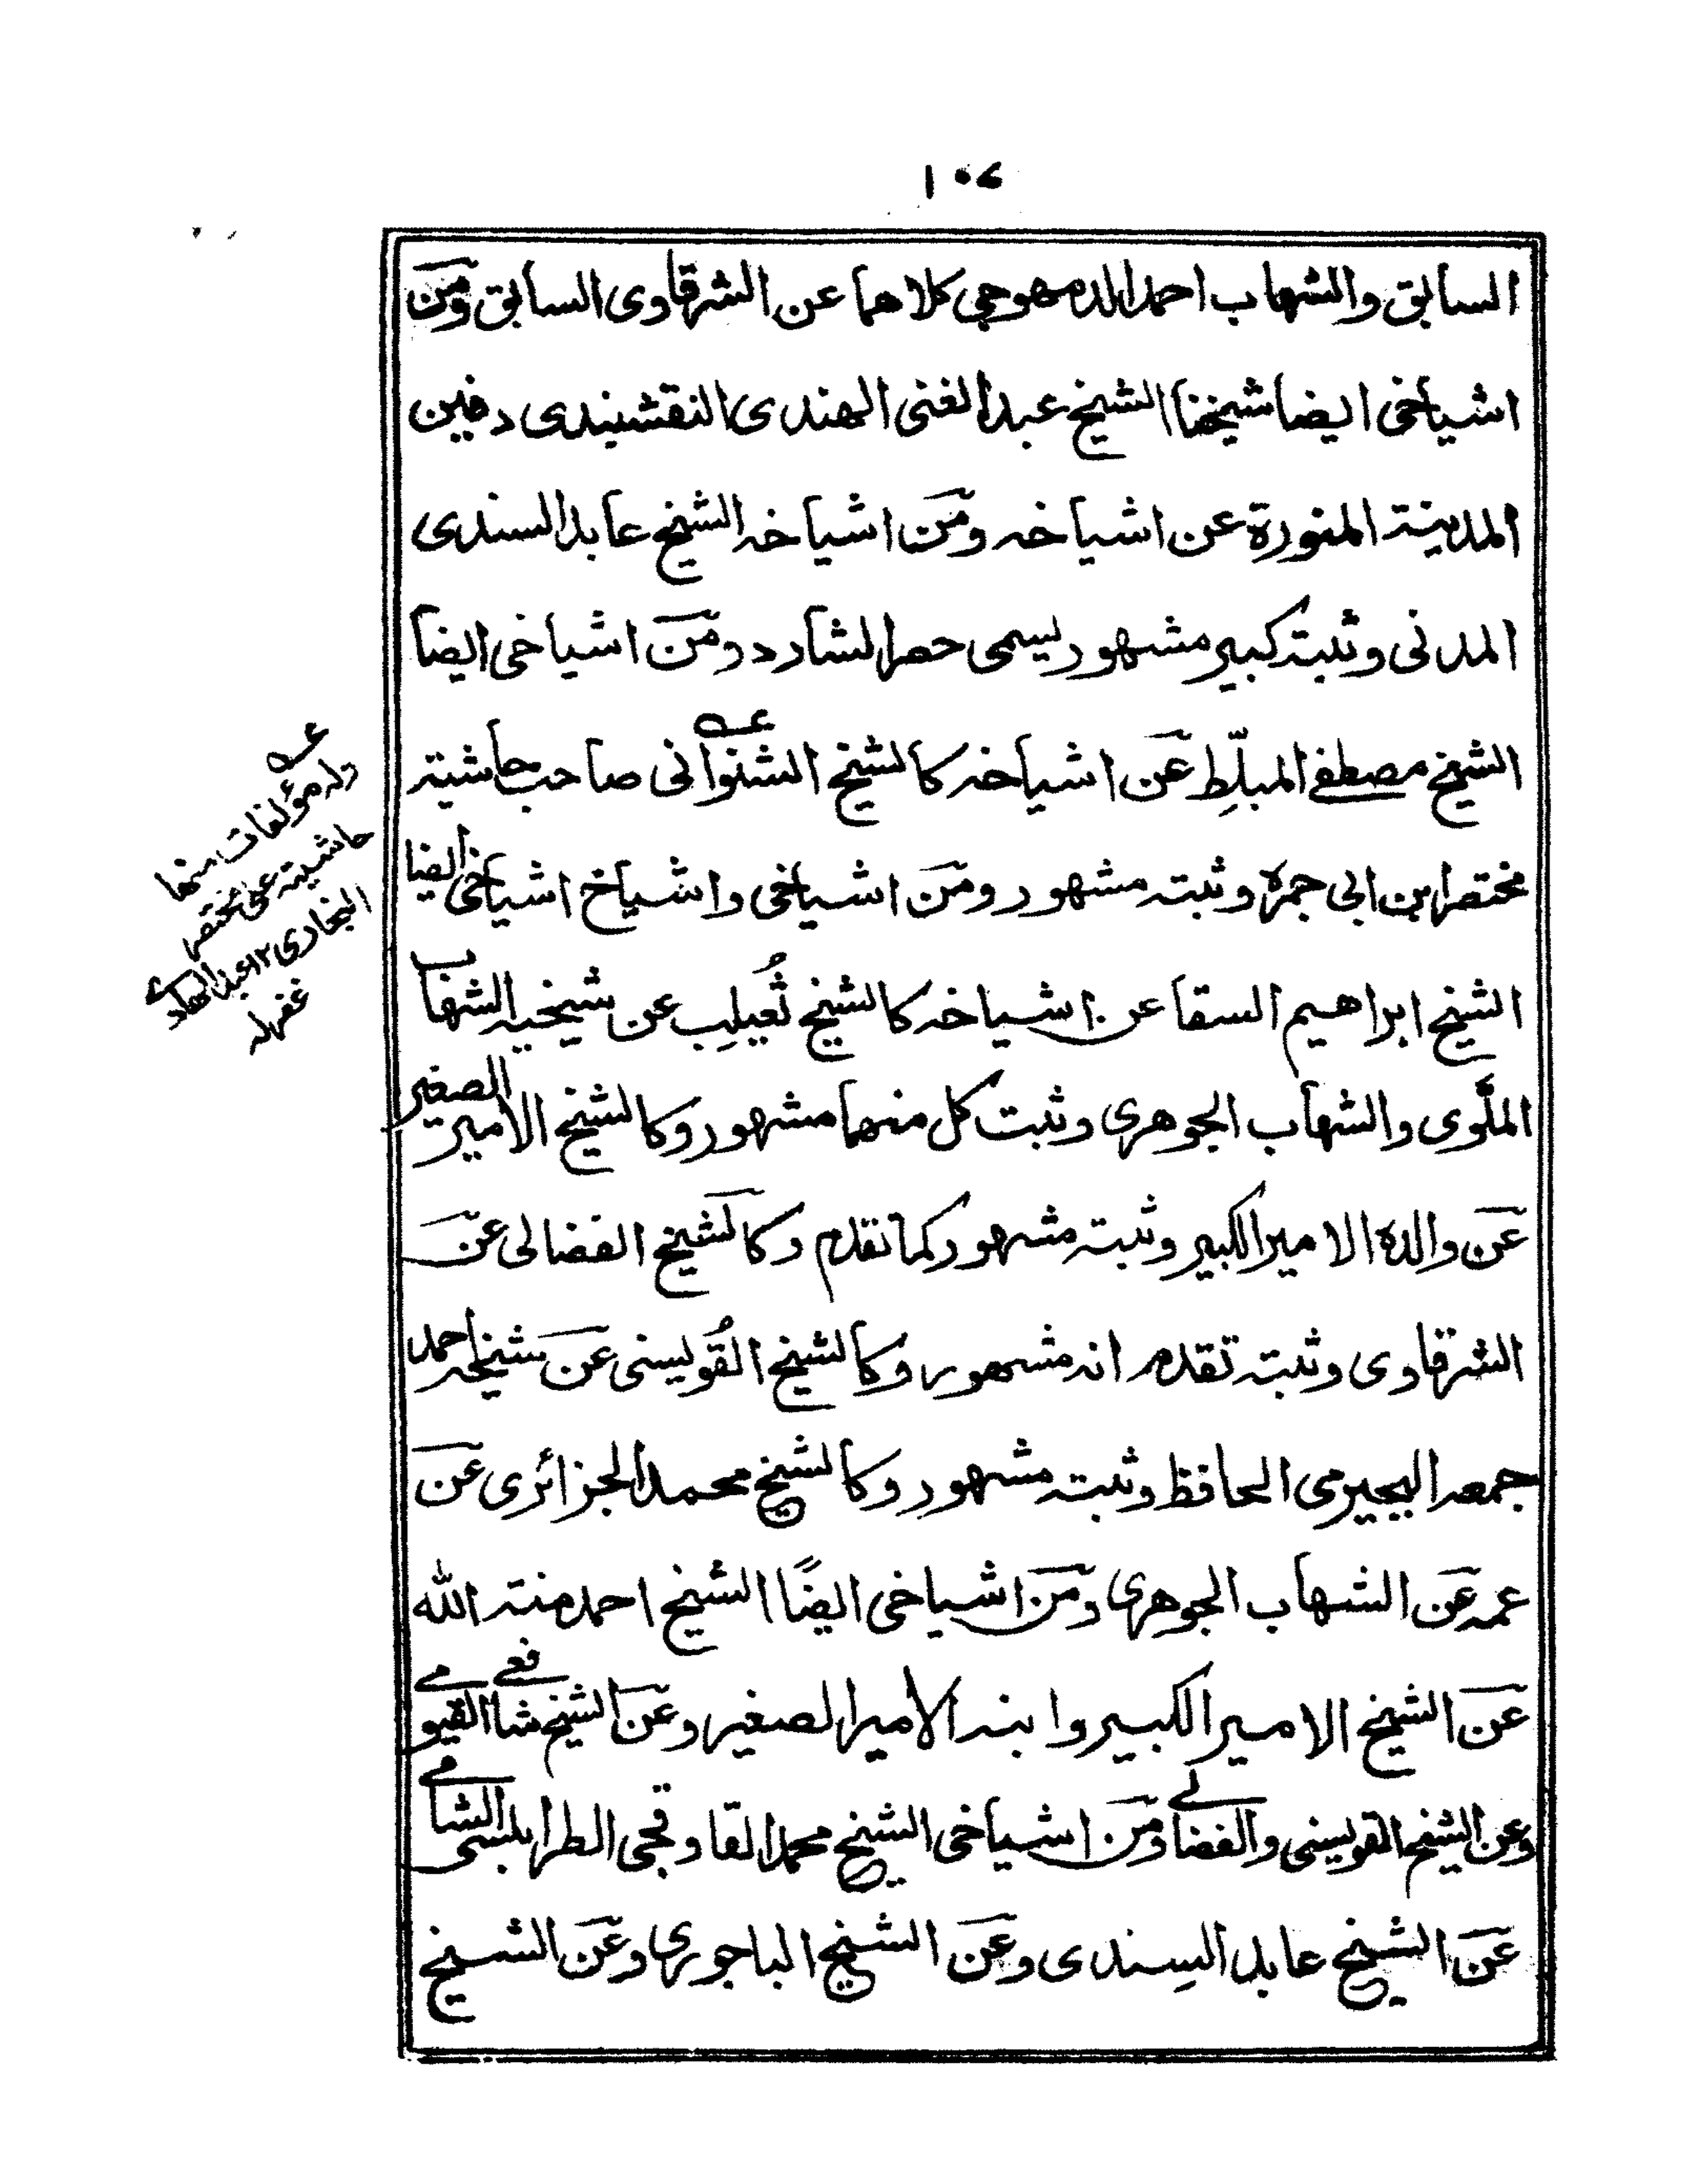 ١٠٤
السابق والشهاب احمد الدمهوجي كلاهما عن الشرقاوى السابق ومن
اشياخى ايضا شيخنا الشيخ عبد الغنى الهندى النقشبندى دفين
المدينة المنورة عن اشياخه ومن اشياخه الشيخ عابد السندى
المدنى وثبته كبير مشهور يسمى حصر الشارد ومن اشياخى ايضا
الشيخ مصطفے المبلّط عن اشياخه كالشيخ الشنوانى صاحب حاشيته
مختصر ابن ابى جمرة وثبته مشهور ومن اشياخى واشياخ اشياخى ايضا
الشيخ ابراهيم السقا عن اشياخه كالشيخ ثُعيلِب عن شيخيه الشهاب
الملَّوى والشهاب الجوهرى وثبت كل منهما مشهور وكالشيخ الامير الصغير
عن والده الامير الكبير وثبته مشهور كما تقدم وكالشيخ الفضالى عن
الشرقاوى وثبته تقدم انه مشهور وكالشيخ القُويسنى عن شيخه احمد
جمعه البجيرمى الحافظ وثبته مشهور وكالشيخ محمد الجزائرى عن
عمه عن الشهاب الجوهرى ومن اشياخى ايضًا الشيخ احمد منته الله
عن الشيخ الامير الكبير وابنه الامير الصغير وعن الشيخ شافعے الفيومے
وعن الشيخ القويسنى والفضالے ومن اشياخى الشيخ محمد القاوقجى الطرابلسى الشامے
عن الشيخ عابد السِندى وعن الشيخ الباجورى وعن الشيخ
عــه
وله مؤلفات منها
حاشيته على مختصر
البخارى ١٢ عبد الهادے
غفر له